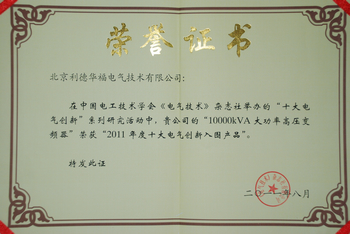 荣誉证书
北京利德华福电气技术有限公司：
在中国电工技术学会《电气技术》杂志社举办的“十大电
气创新”系列研究活动中，贵公司的“10000kVA 大功率高压变
频器”荣获“2011 年度十大电气创新入围产品”。
特发此证
二〇一一年八月